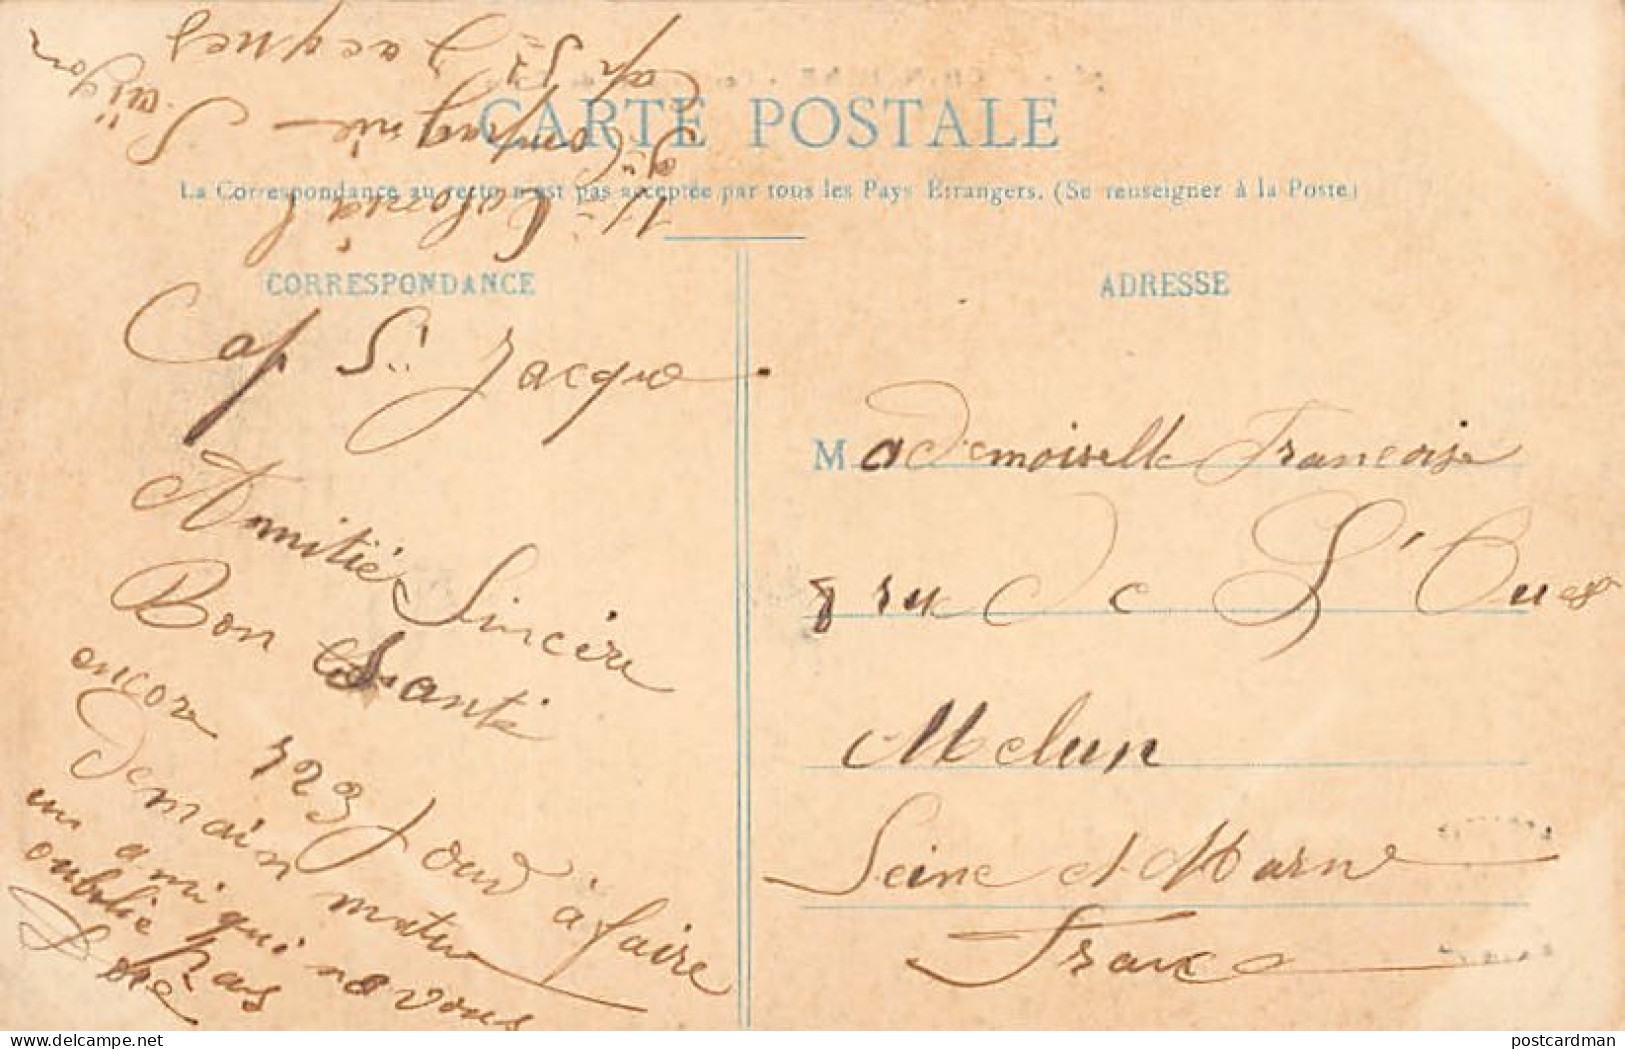 CARTE POSTALE
La Correspondance au recto n'est pas acceptée par tous les Pays Étrangers. (Se renseigner à la Poste)
CORRESPONDANCE
ADRESSE
11e Colonial
Compagnie
Cap St Jacques
Saïgon
Cap St Jacque
Amitié Sincère
Bon Santé
encore 323 Jour à faire
Demain matin
un ami qui ne vous
oublie pas
Mademoiselle Francoise
8 rue de L'Ouest
Melun
Seine et Marne
France
delcampe.net
postcardman